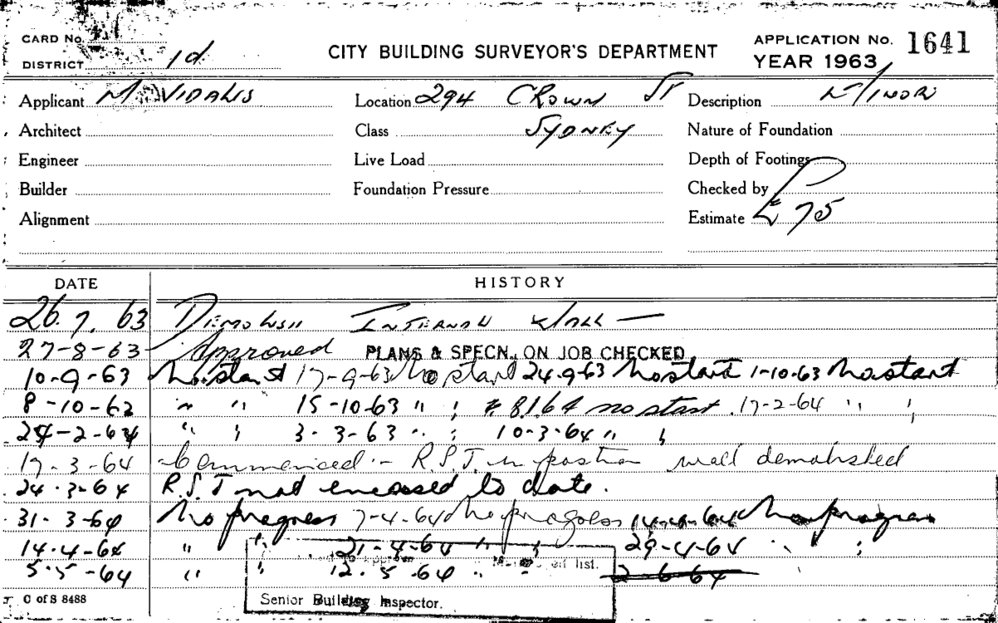 CARD No.
DISTRICT 1d.
CITY BUILDING SURVEYOR'S DEPARTMENT
APPLICATION No. 1641
YEAR 1963
Applicant M. VIDALIS Location 294 CROWN ST Description MINOR
Architect Class SYDNEY Nature of Foundation
Engineer Live Load Depth of Footings
Builder Foundation Pressure Checked by
Alignment Estimate £ 75
DATE HISTORY
26.7.63 DEMOLISH INTERNAL WALL —
27-8-63 Approved PLANS & SPECN. ON JOB CHECKED
10-9-63 No start 17-9-63 No start 24.9.63 No start 1-10.63 No start
8-10-63 " " 15-10-63 " ; 8.1.64 no start. 17-2-64 " ;
24-2-64 " ; 3-3-63 " ; 10-3-64 " ;
17-3-64 Commenced - R.S.J. in position wall demolished
24.3-64 R.S.J not encased to date.
31.3-64 No progress 7-4-64 No progress 14-4-64 No progress
14.4-64 " " 21-4-64 " ; 29-4-64 " ;
5.5-64 " ; 12.5.64 " " 2-6-64
list.
Senior Building Inspector.
C of S 8488